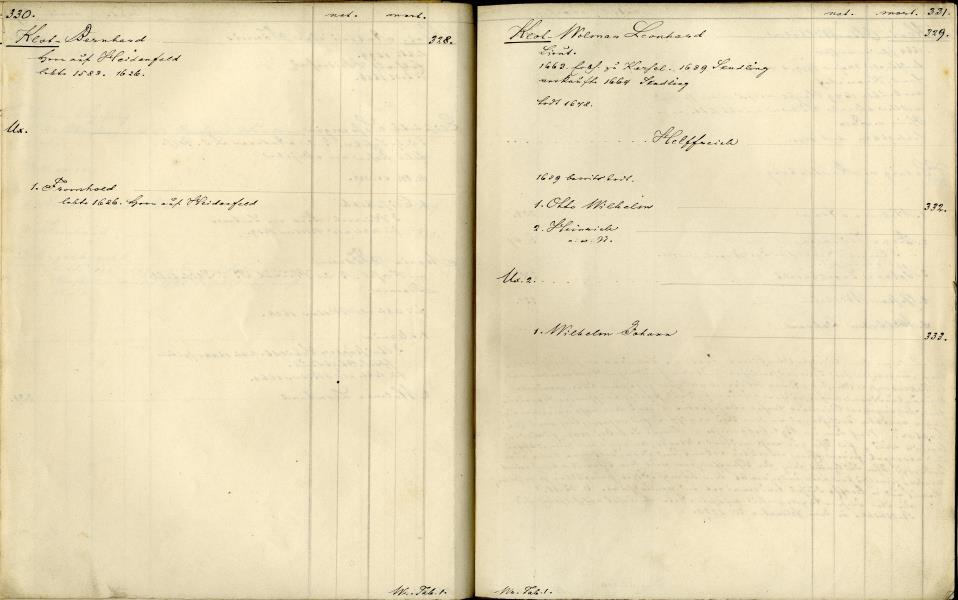 330. nat. mort.
Klot- Bernhard 328.
Herr auf Heidenfeld
lebte 1583. 1626.
Ux.
1. Fromhold
lebte 1626. Herr auf Heidenfeld
Nr. Tab. 1.
nat. mort. 331.
Klot- Wolmar Leonhard 329.
Lieut.
1663. zu 1639 Sendling
verkaufte 1664 Sendling
todt 1678.
Helffreich
1639 bereits todt.
1. Otto Wilhelm 332.
2. Heinrich
Ux. 2.
1. Wilhelm Johann 333.
Nr. Tab. 1.